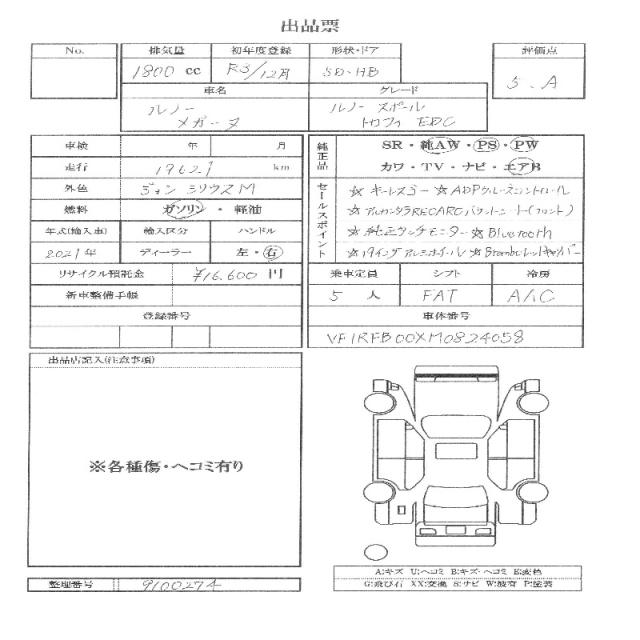 出品票
No. 排気量 初年度登録 形状・ドア 評価点
1800 cc R3/12月 5D・HB 5.A
車名 グレード
ルノー ルノー スポール
メガーヌ トロフィ EDC
車検 年 月 純正品 SR・純AW・PS・PW
走行 19621 km カワ・TV・ナビ・エアB
外色 ジョン シリウスM セールスポイント ☆キーレスゴー ☆ADPクルーズコントロール
燃料 ガソリン・軽油 ☆アルカンタラRECAROバケットシート(フロント)
年式(輸入車) 輸入区分 ハンドル ☆純正タッチモニター ☆Bluetooth
2021年 ディーラー 左・右 ☆19インチアルミホイール ☆Bremboレッドキャリパー
リサイクル預託金 ¥16.600 円 乗車定員 シフト 冷房
新車整備手帳 5 人 FAT A/C
登録番号 車体番号
VF1RFB00XM0824058
出品店記入(注意事項)
※各種傷・ヘコミ有り
A:キズ U:ヘコミ B:キズ・ヘコミ E:変色
G:飛び石 XX:交換 S:サビ W:波有 P:塗装
整理番号 9100274